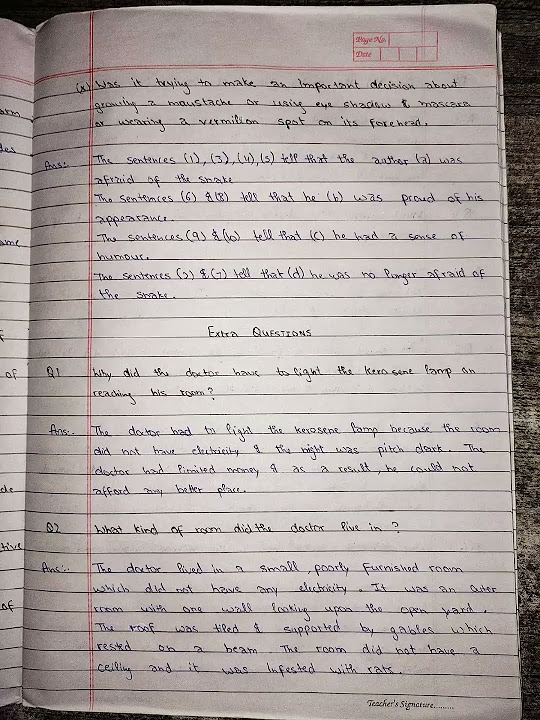 Page No.
Date
(x) Was it trying to make an Important decision about
growing a moustache or using eye shadow & mascara
or wearing a vermilion spot on its forehead.
Ans: The sentences (1), (3), (4), (5) tell that the author (a) was
afraid of the snake
The sentences (6) & (8) tell that he (b) was proud of his
appearance.
The sentences (9) & (10) tell that (c) he had a sense of
humour.
The sentences (2) & (7) tell that (d) he was no longer afraid of
the snake.
Extra QUESTIONS
Q1 Why did the doctor have to light the kerosene lamp on
reaching his room?
Ans:. The doctor had to light the kerosene lamp because the room
did not have electricity & the night was pitch dark. The
doctor had limited money & as a result, he could not
afford any better place.
Q2 What kind of room did the doctor live in ?
Ans:. The doctor lived in a small, poorly furnished room
which did not have any electricity. It was an outer
room with one wall looking upon the open yard.
The roof was tiled & supported by gables which
rested on a beam The room did not have a
ceiling and it was Infested with rats.
Teacher's Signature.........